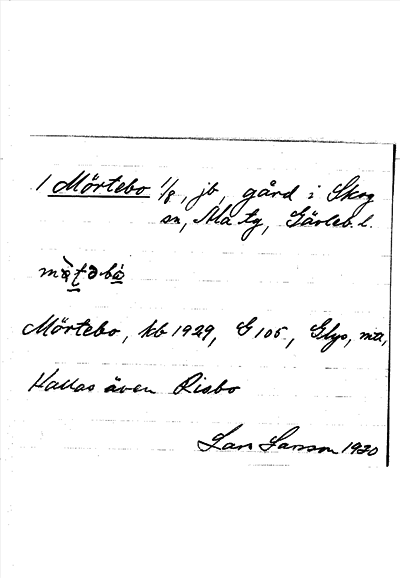 1 Mörtebo 1/8, jb, gård i Skog
sn, Ala tg, Gävleb. l.
Mörtebo, kb 1929, G 105, Glys, mtl,
Kallas även Risbo
Lars Larsson 1930